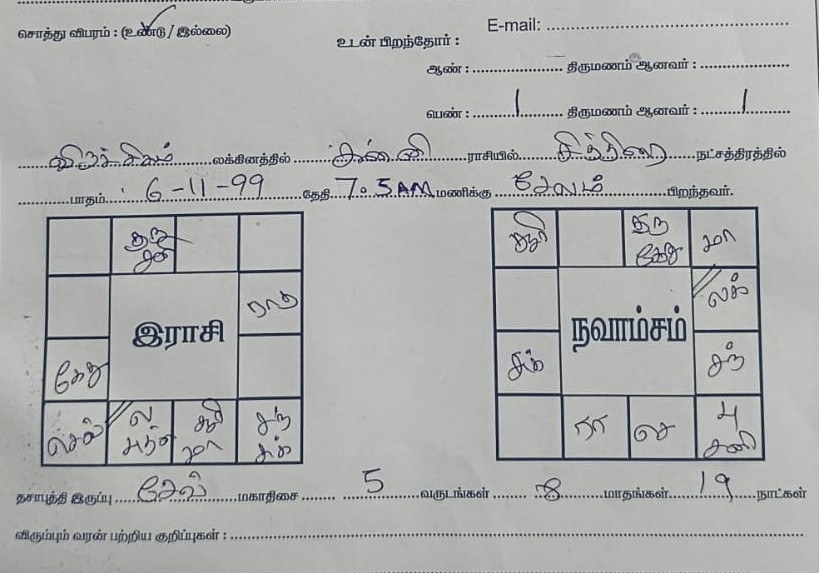 சொத்து விபரம் : (உண்டு / இல்லை)
E-mail:
உடன் பிறந்தோர் :
ஆண் : திருமணம் ஆனவர் :
பெண் : 1 திருமணம் ஆனவர் : 1
விருச்சிகம் லக்கினத்தில் கன்னி ராசியில் சித்திரை நட்சத்திரத்தில்
பாதம் 6-11-99 தேதி 7.5 AM மணிக்கு சேலம் பிறந்தவர்.
குரு
சனி
ராகு
இராசி
கேது
செவ் ல புதன் சூரி மா சந் சுக்
சூரி குரு கேது மா
லக்
நவாம்சம்
சுக் சந்
ரா செ பு சனி
தசாபுத்தி இருப்பு செவ் மகாதிசை 5 வருடங்கள் 8 மாதங்கள் 19 நாட்கள்
விரும்பும் வரன் பற்றிய குறிப்புகள் :